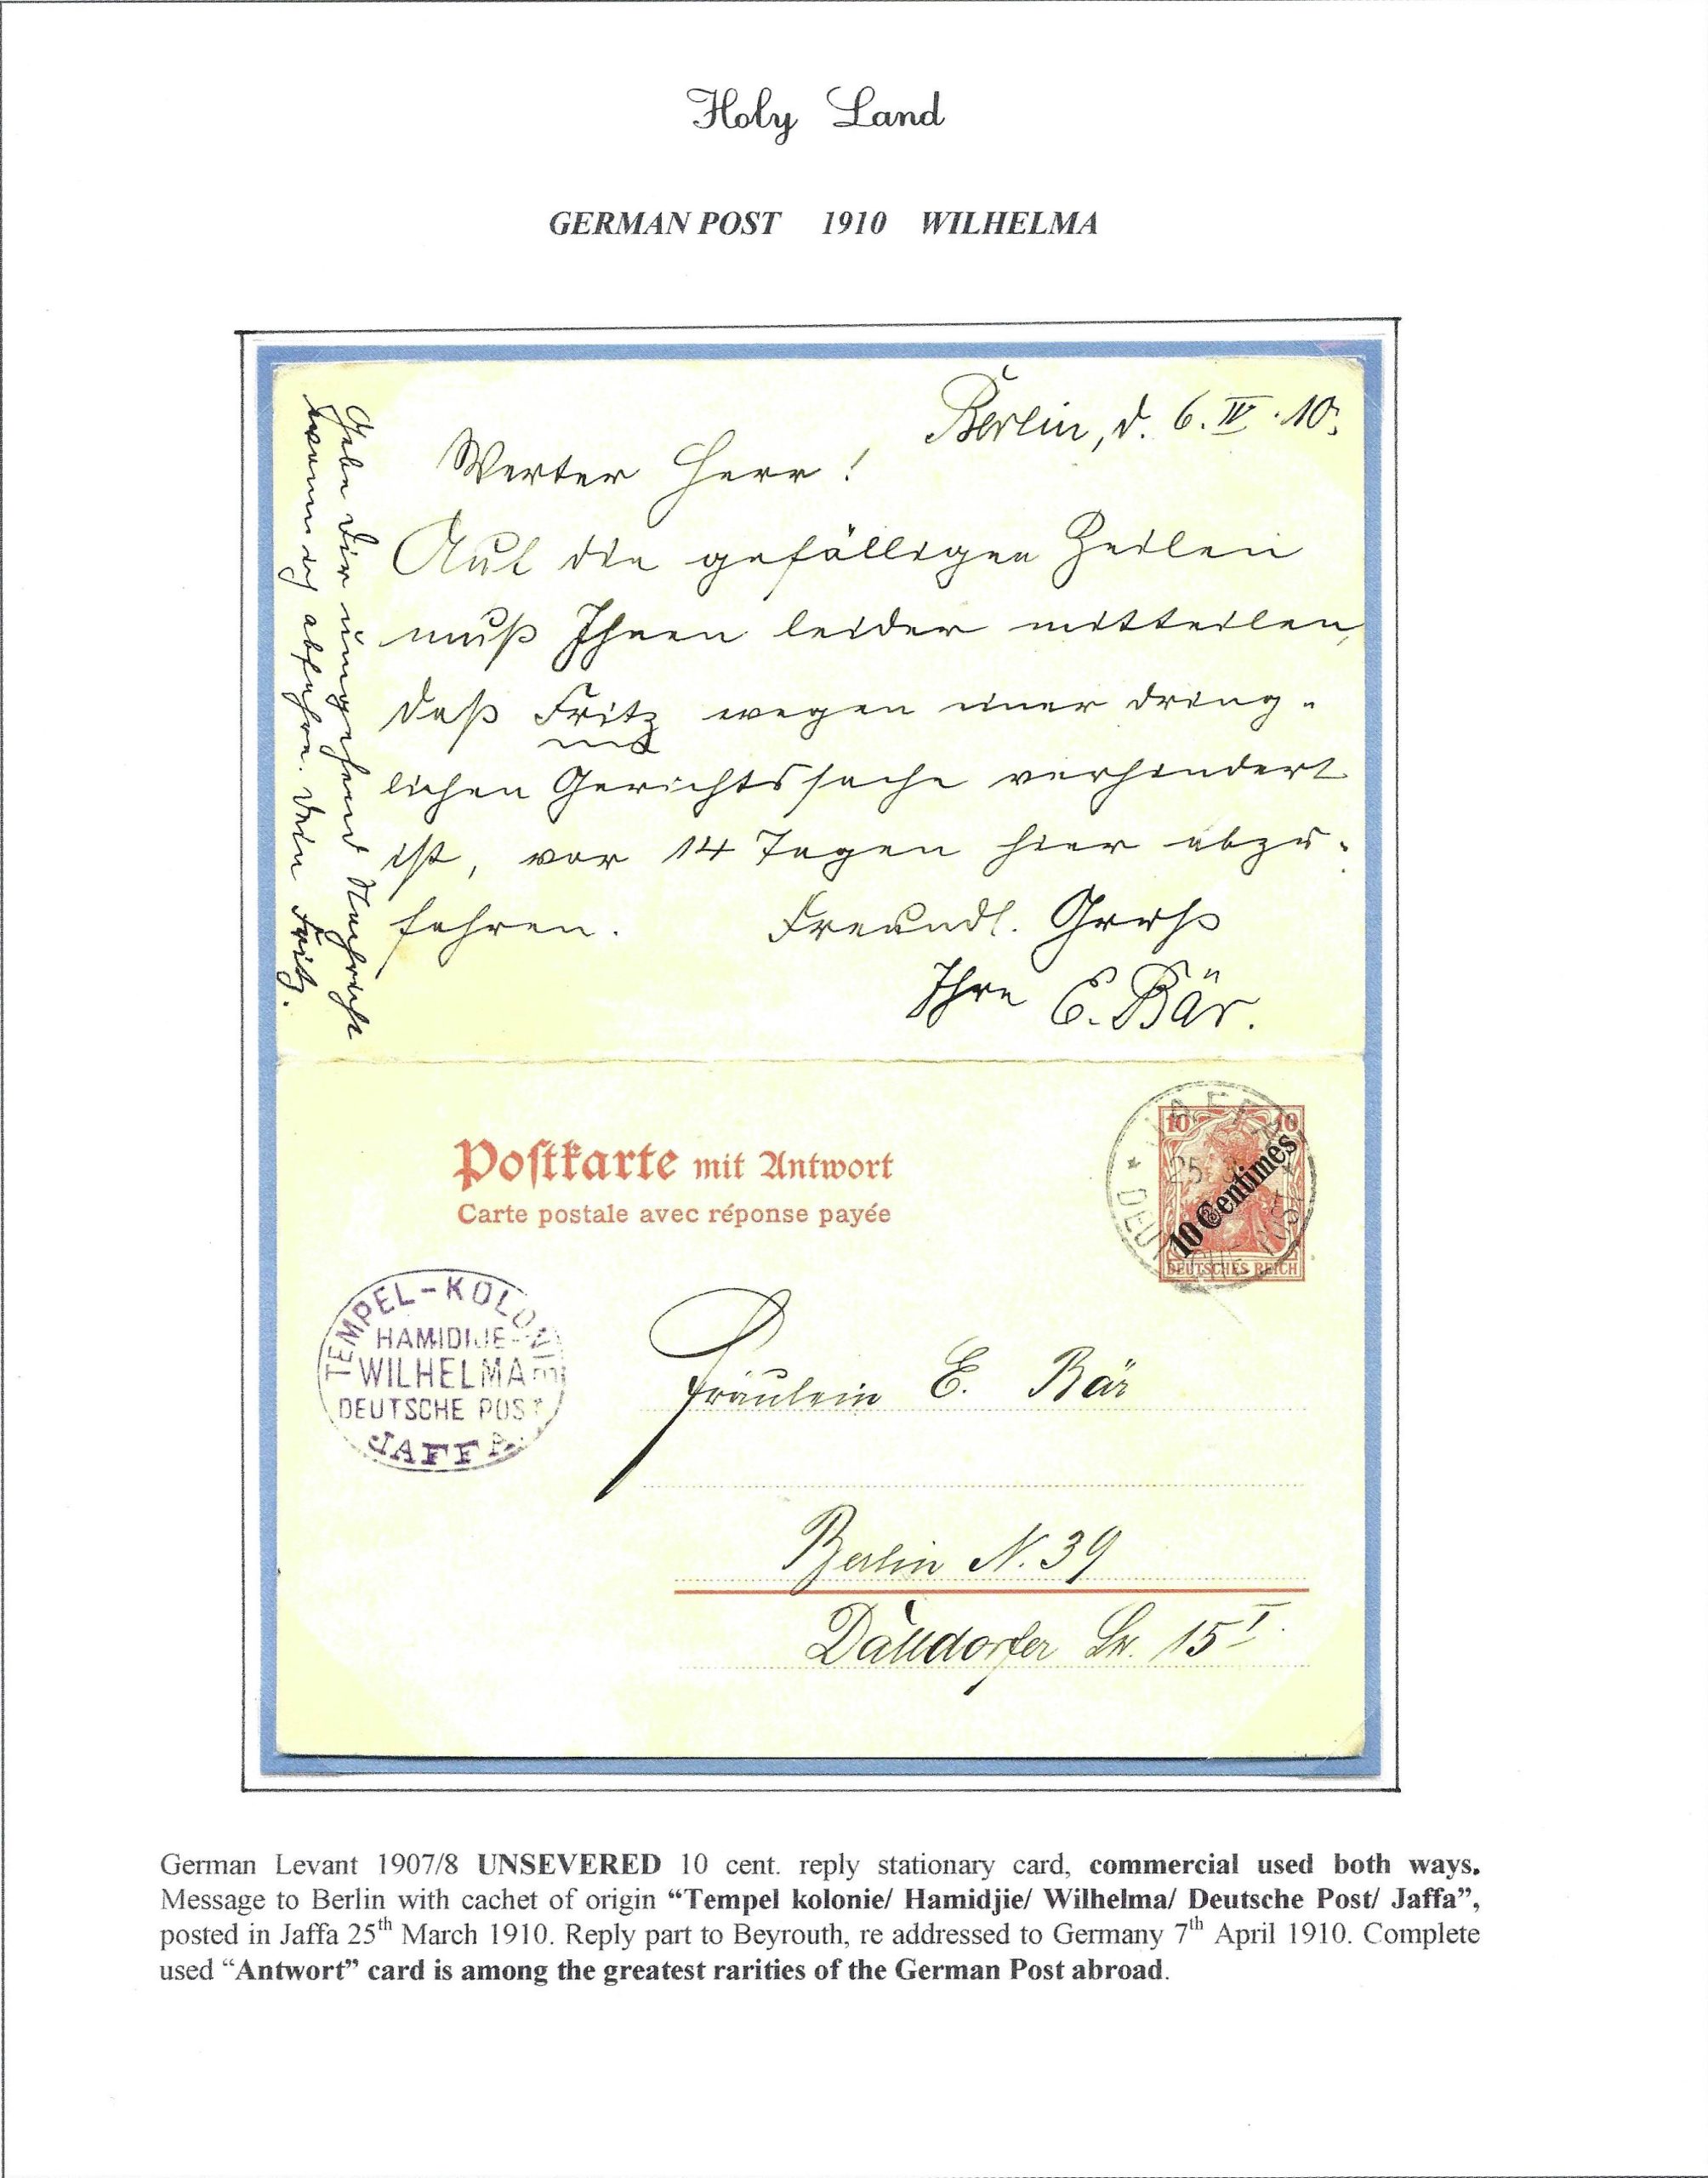 Holy Land
GERMAN POST 1910 WILHELMA
Berlin, d. 6. IV. 10.
Werter Herr!
Auf die gefälligen Zeilen
muß Ihnen leider mitteilen,
daß Fritz wegen einer dring-
lichen Gerichtssache verhindert
ist, vor 14 Tagen hier abzu-
fahren. Freundl. Gruß
Ihre E. Bär.
Gebe Dir umgehend Nachricht
wann ich abfahre. Dein Fritz.
Postkarte mit Antwort
Carte postale avec réponse payée
10 10
10 Centimes
DEUTSCHES REICH
JAFFA
25 3
DEUTSCHE POST
TEMPEL-KOLONIE
HAMIDIJE-
WILHELMA
DEUTSCHE POST
JAFFA
Fräulein E. Bär
Berlin N. 39
Dalldorfer Str. 15 I
German Levant 1907/8 UNSEVERED 10 cent. reply stationary card, commercial used both ways.
Message to Berlin with cachet of origin “Tempel kolonie/ Hamidjie/ Wilhelma/ Deutsche Post/ Jaffa”,
posted in Jaffa 25th March 1910. Reply part to Beyrouth, re addressed to Germany 7th April 1910. Complete
used “Antwort” card is among the greatest rarities of the German Post abroad.